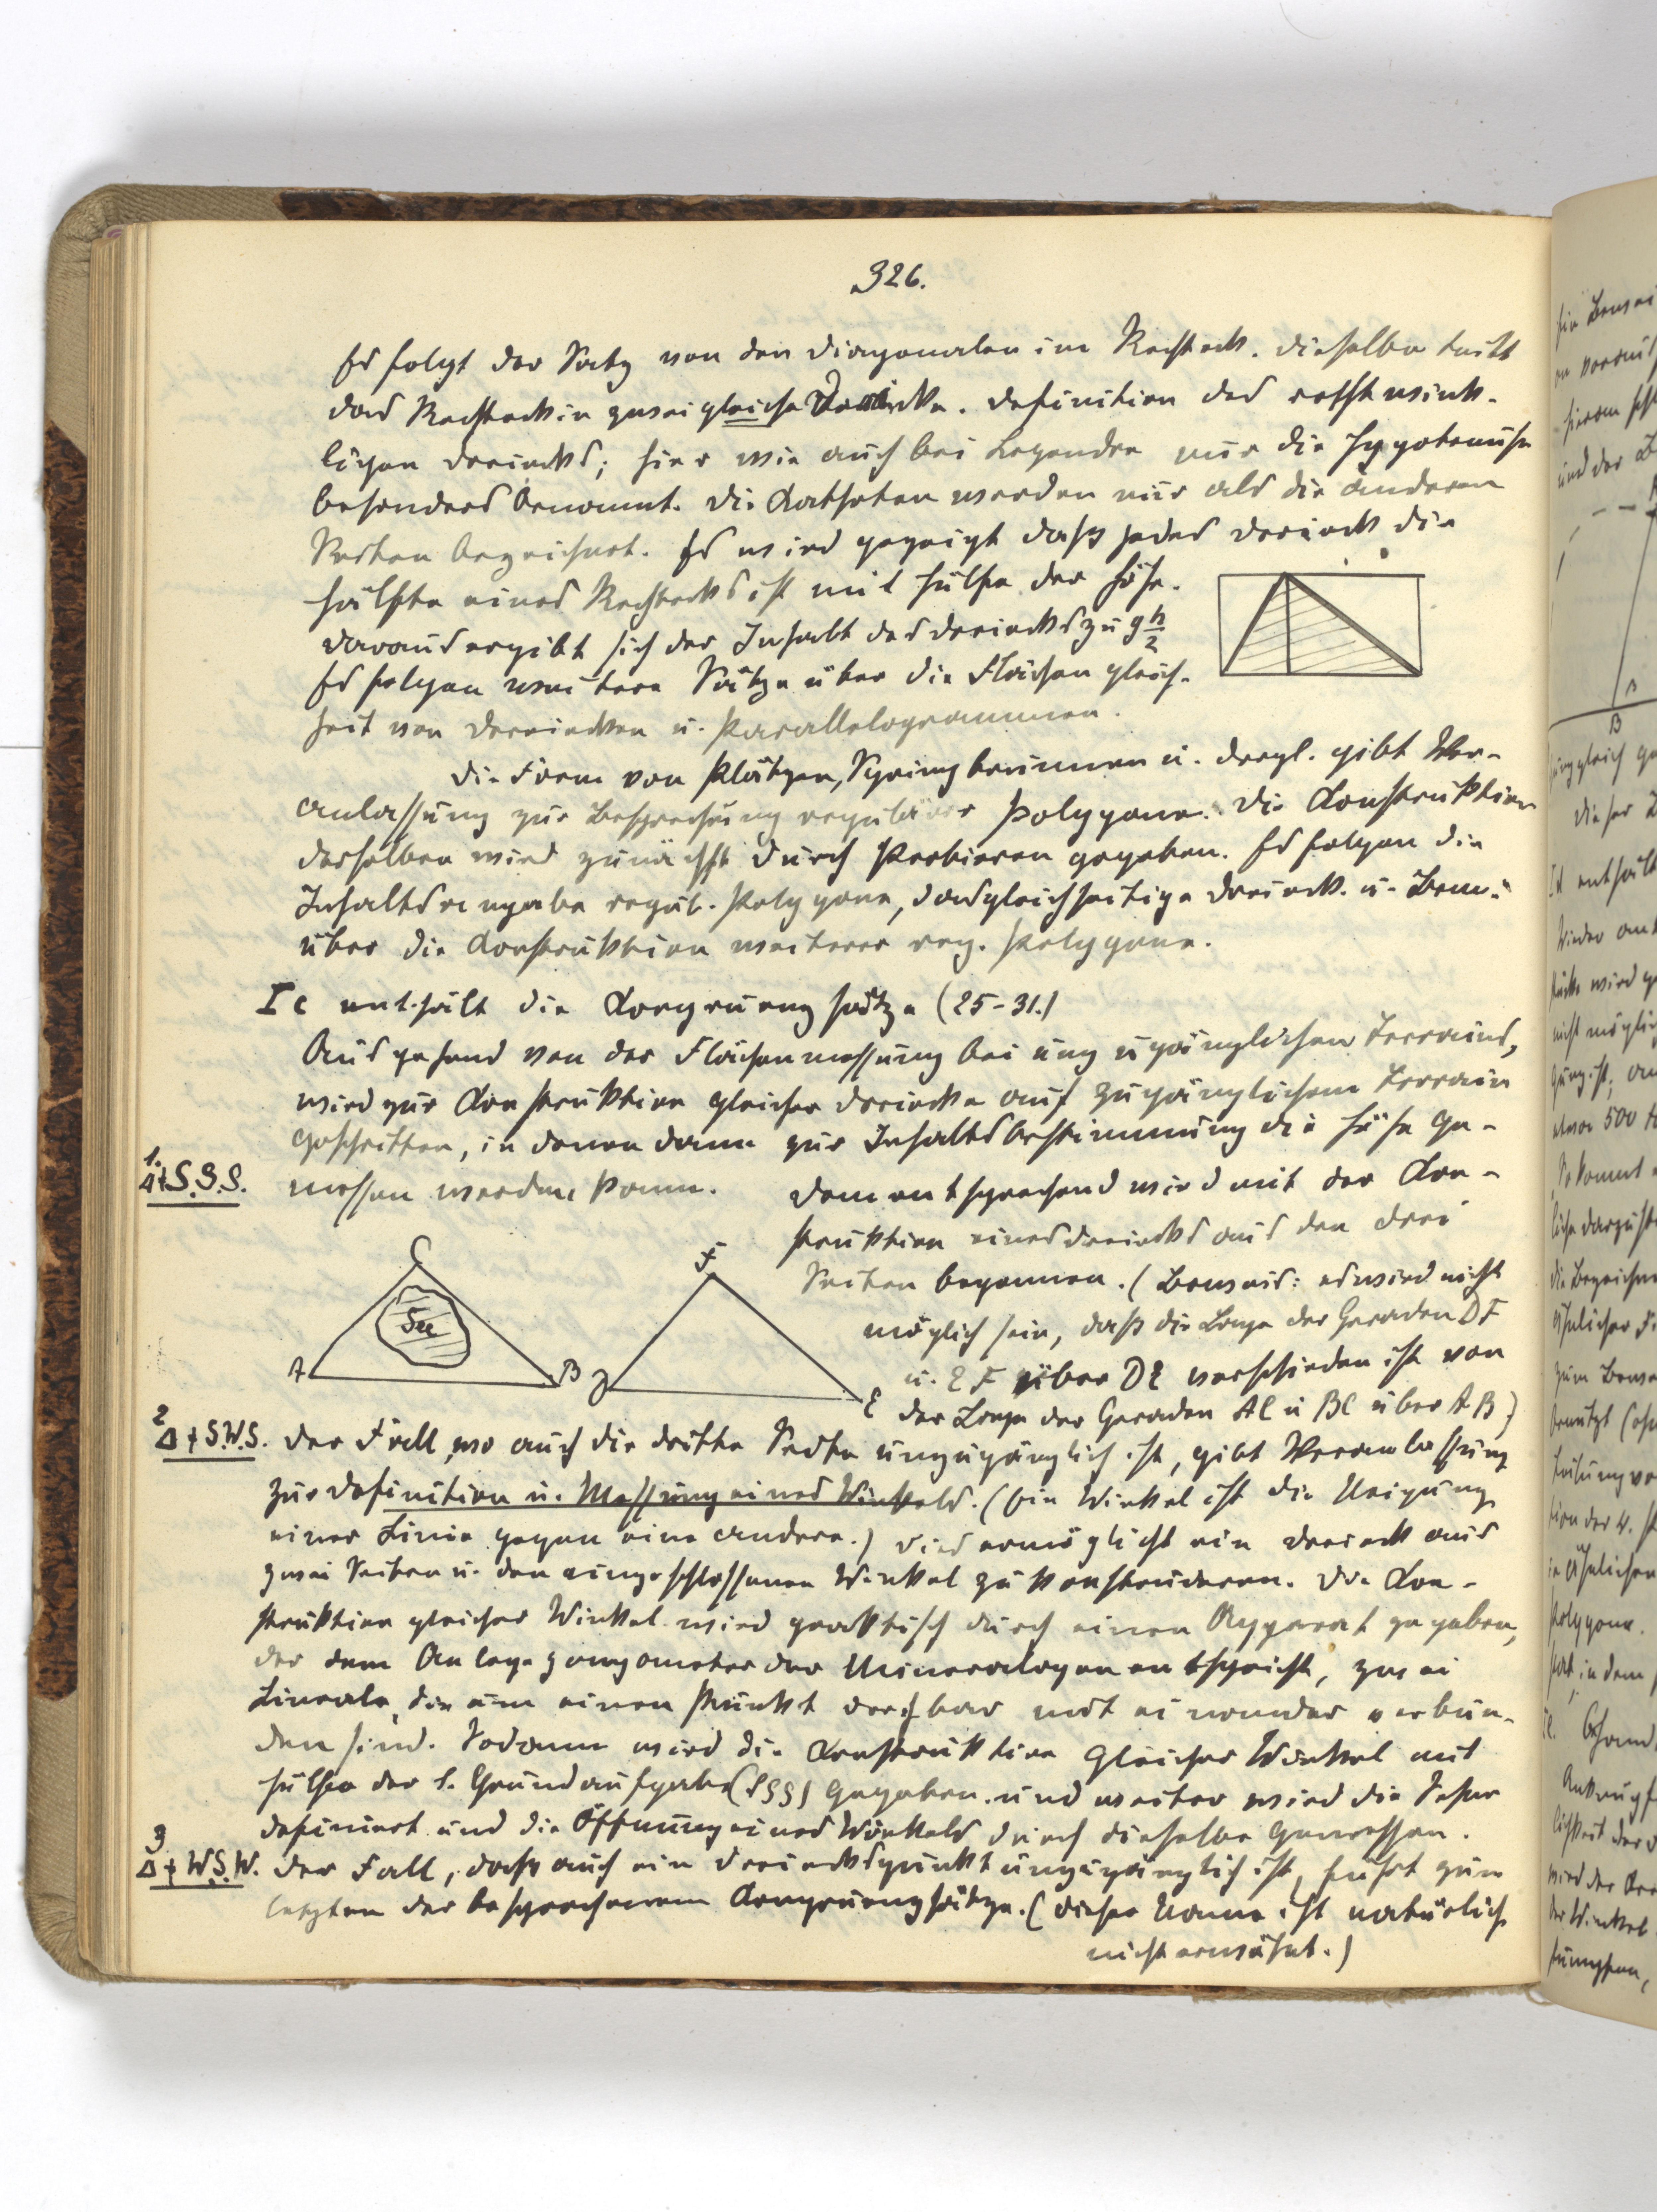 326.
Es folgt der Satz von den Diagonalen im Rechteck. Dieselbe teilt
das Rechteck in zwei gleiche Dreiecke. Definition des rechtwink-
ligen Dreiecks; hier wie auch bei Legendre nur die Hypotenuse
besonders benannt. Die Katheten werden nur als die anderen
Seiten bezeichnet. Es wird gezeigt daß jedes Dreieck die
Hälfte eines Rechtecks ist mit Hülfe der Höhe.
Daraus ergibt sich der Inhalt des Dreiecks zu g h/2
Es folgen weitere Sätze über die Flächengleich-
heit von Dreiecken u. Parallelogrammen.
Die Form von Plätzen, Springbrunnen u. dergl. gibt Ver-
anlassung zur Besprechung regulärer Polygone. Die Konstruktion
derselben wird zunächst durch Probieren gegeben. Es folgen die
Inhaltsangabe regul. Polygone, das gleichseitige Dreieck. u. Bem.
über die Konstruktion weiterer reg. Polygone.
Ic enthält die Kongruenzsätze (25-31.)
Ausgehend von der Flächenmessung bei unzugänglichen Terrains,
wird zur Konstruktion gleicher Dreiecke auf zugänglichem Terrain
geschritten, in denen dann zur Inhaltsbestimmung die Höhe ge-
1.
Δ+S.S.S.
messen werden kann. Dementsprechend wird mit der Kon-
struktion eines Dreiecks aus den drei
Seiten begonnen. (Beweis: es wird nicht
möglich sein, daß die Lage der Geraden DF
u. EF über DE verschieden ist von
der Lage der Geraden AC u BC über AB)
C
See
A
B
F
D
E
2
Δ+S.W.S.
Der Fall, wo auch die dritte Seite unzugänglich ist, gibt Veranlassung
zur Definition u. Messung eines Winkels. (Ein Winkel ist die Neigung
einer Linie gegen eine andere.) Dies ermöglicht ein Dreieck aus
zwei Seiten u. den eingeschlossenen Winkel zu konstruieren. Die Kon-
struktion gleicher Winkel wird praktisch durch einen Apparat gegeben,
der dem Anlegegoniometer der Mineralogen entspricht, zwei
Lineale, die um einen Punkt drehbar mit einander verbun-
den sind. Sodann wird die Konstruktion gleicher Winkel mit
Hülfe der 1. Grundaufgabe (SSS) gegeben. und weiter wird die Sehne
definiert und die Öffnung eines Winkels durch dieselbe gemessen.
3
Δ+W.S.W.
Der Fall, daß auch ein Dreieckspunkt unzugänglich ist, führt zum
letzten der besprochenen Kongruenzsätze. (Dieser Name ist natürlich
nicht erwähnt.)